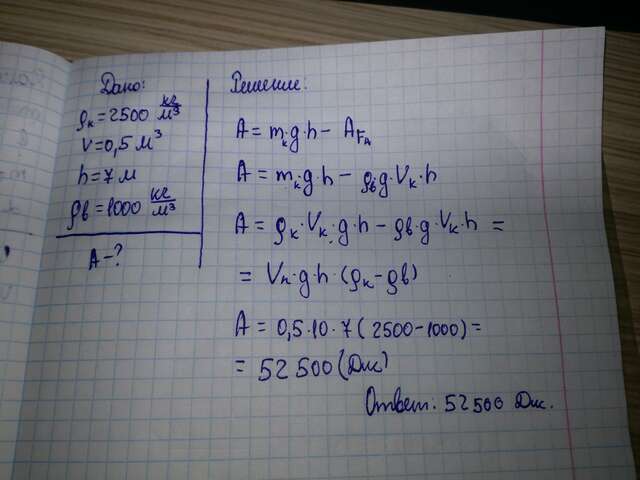 Дано:
ρк = 2500 кг/м³
V = 0,5 м³
h = 7 м
ρв = 1000 кг/м³
A - ?
Решение:
A = mк·g·h - AFA
A = mк·g·h - ρвg·Vк·h
A = ρк·Vк·g·h - ρв·g·Vк·h =
= Vк·g·h·(ρк-ρв)
A = 0,5·10·7(2500-1000) =
= 52 500 (Дж)
Ответ: 52 500 Дж.